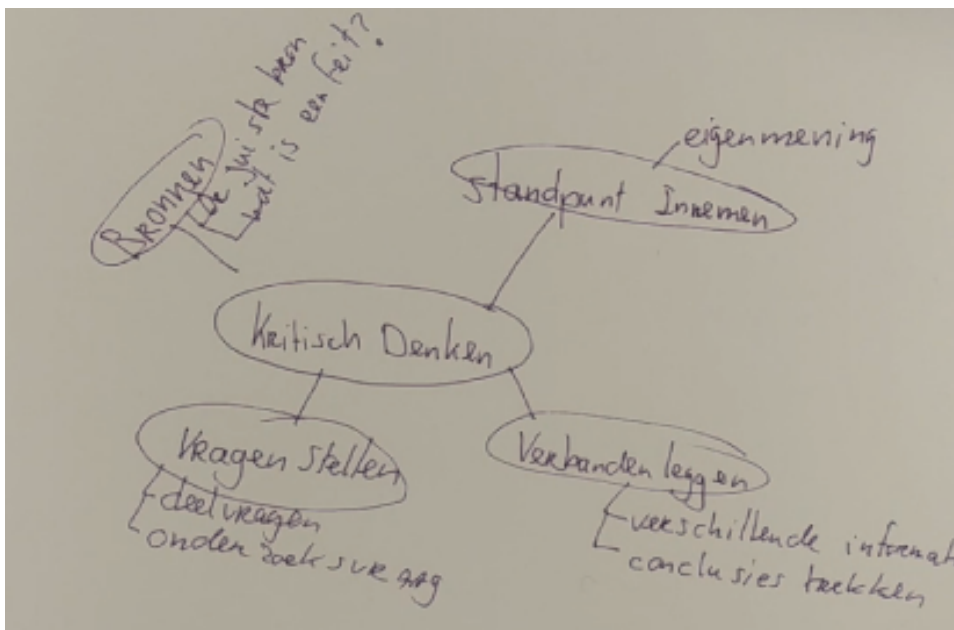 Bronnen
de juiste bron
wat is een feit?
eigen mening
Standpunt Innemen
Kritisch Denken
Vragen stellen
deelvragen
onderzoeksvraag
Verbanden leggen
verschillende informat
conclusies trekken